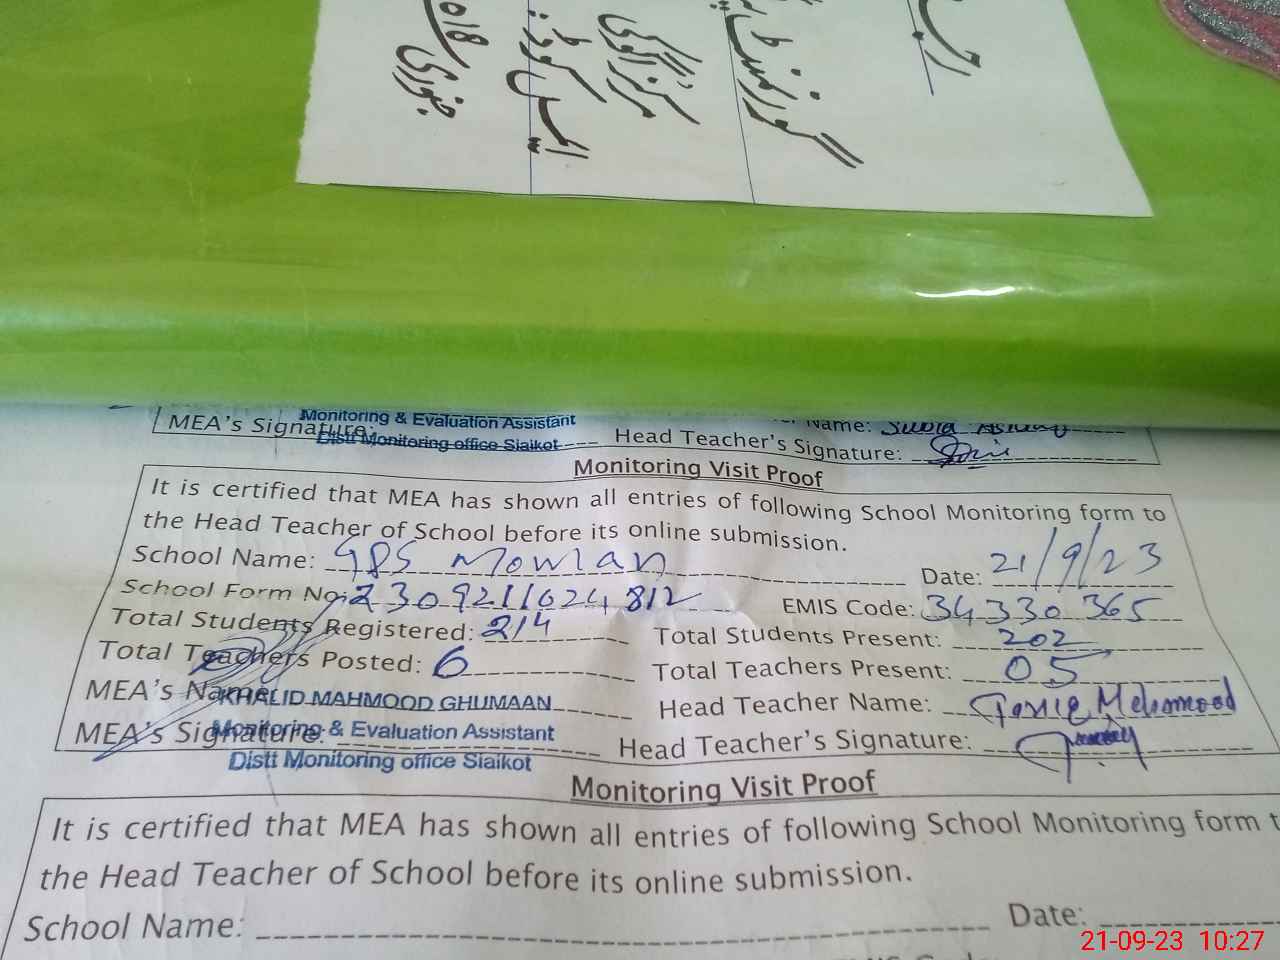 گورنمنٹ
مرکز اگوکی
جنوری 2018
Monitoring & Evaluation Assistant
MEA's Signature:
Distt Monitoring office Sialkot
Name: Subia Ashraf
Head Teacher's Signature:
Monitoring Visit Proof
It is certified that MEA has shown all entries of following School Monitoring form to
the Head Teacher of School before its online submission.
School Name: GPS Mowlan Date: 21/9/23
School Form No: 2309211024812 EMIS Code: 34330365
Total Students Registered: 214 Total Students Present: 202
Total Teachers Posted: 6 Total Teachers Present: 05
MEA's Name: KHALID MAHMOOD GHUMAAN Head Teacher Name: Mehmood
MEA's Signature: Monitoring & Evaluation Assistant Head Teacher's Signature:
Distt Monitoring office Sialkot
Monitoring Visit Proof
It is certified that MEA has shown all entries of following School Monitoring form t
the Head Teacher of School before its online submission.
School Name: Date:
21-09-23 10:27